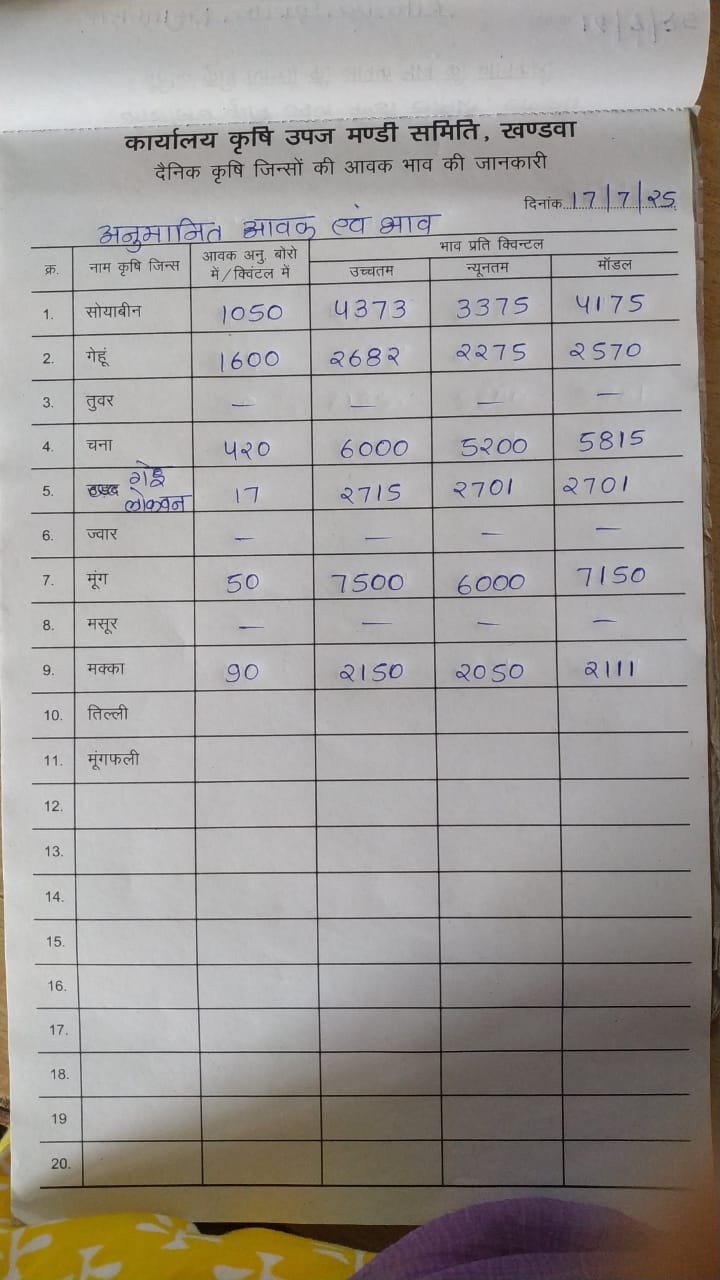 कार्यालय कृषि उपज मण्डी समिति, खण्डवा
दैनिक कृषि जिन्सों की आवक भाव की जानकारी
दिनांक 17/7/२5
अनुमानित आवक एवं भाव
क्र. नाम कृषि जिन्स आवक अनु. बोरो में/क्विंटल में भाव प्रति क्विन्टल
उच्चतम न्यूनतम मॉडल
1. सोयाबीन 1050 4373 3375 4175
2. गेहूं 1600 २68२ २275 २570
3. तुवर — — — —
4. चना 4२0 6000 5२00 5815
5. गेहूं लोकवन 17 २715 २701 २701
6. ज्वार — — — —
7. मूंग 50 7500 6000 7150
8. मसूर — — — —
9. मक्का 90 २150 २050 २111
10. तिल्ली
11. मूंगफली
12.
13.
14.
15.
16.
17.
18.
19
20.